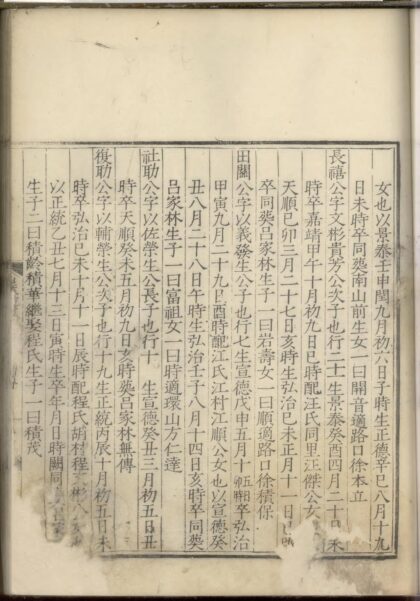 女也以景泰壬申閏九月初六日子時生正德辛巳八月十九
日未時卒同葬南山前生女一曰開音適路口徐本立
長禧公字文彬貴芳公次子也行二十生景泰癸酉四月二十日未
時卒嘉靖甲午十月初九日巳時配汪氏同里汪傑公女
天順巳卯三月二十七日亥時生弘治巳未正月十一日巳時
卒同葬呂家林生子一曰岩壽女一曰順適路口徐積保
田關公字以義發生公子也行七生宣德戊申五月十 卒弘治
甲寅九月二十九日酉時配江氏江村江順公女也以宣德癸
丑八月二十八日午時生弘治壬子八月十四日亥時卒同葬
呂家林生子一曰富祖女一曰時適環山方仁達
社助公字以佐榮生公長子也行十 生宣德癸丑三月初五日丑
時卒天順癸未五月初九日亥時葬呂家林無傳
復助公字以輔榮生公次子也行十九生正統丙辰十月初五日未
時卒弘治巳未十月十一日辰時配程氏胡村程
以正統乙丑七月十三日寅時生卒年月日時闕同
生子二曰積齡積華繼娶程氏生子一曰積茂